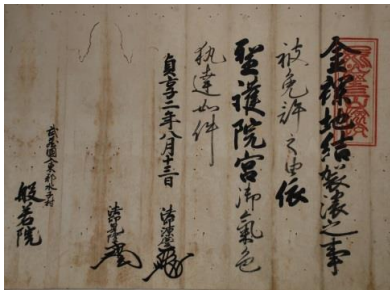 金襴地結袈裟之事
被免許之由依
聖護院宮御氣色
執達如件
貞享二年八月十三日
法印
法印
武蔵國入東郡水子村
般若院